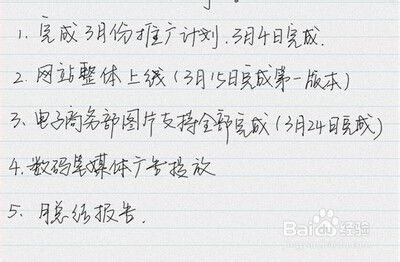 1. 完成3月份推广计划.3月4日完成.
2. 网站整体上线(3月15日完成第一版本)
3、电子商务部图片支持全部完成(3月24日完成)
4.数码类媒体广告投放
5. 月总结报告.
Baidu经验